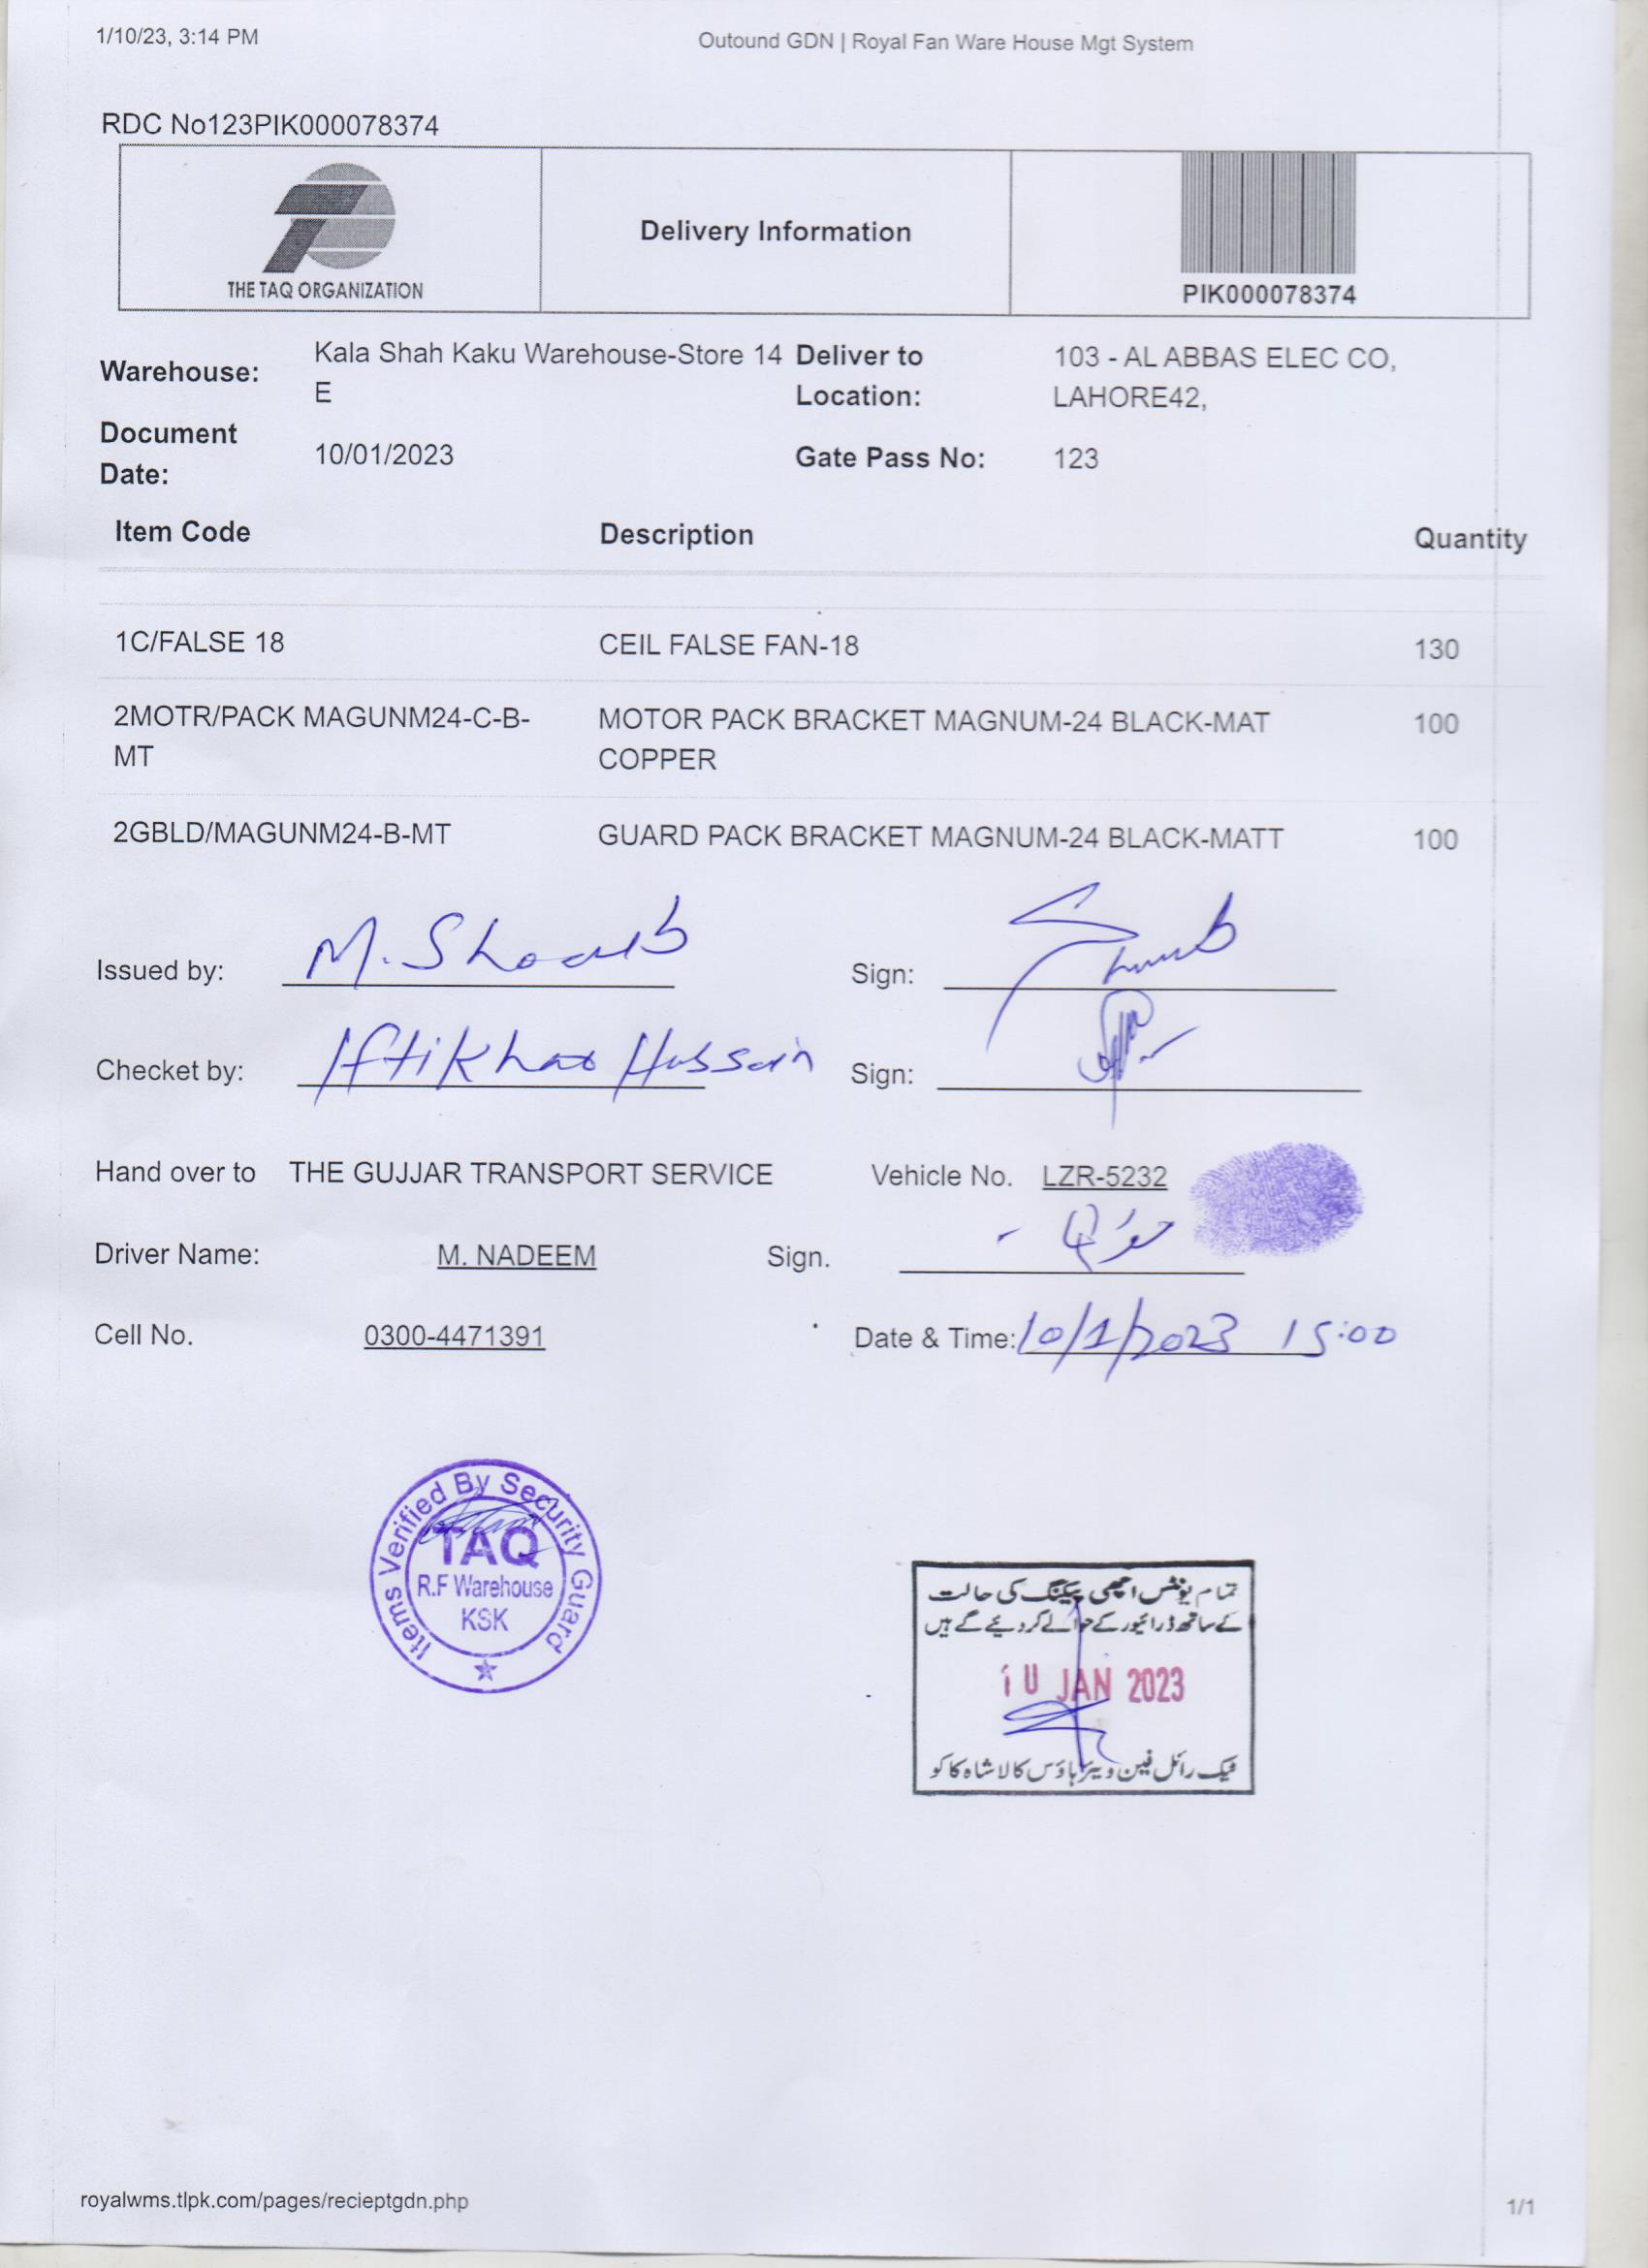 1/10/23, 3:14 PM
Outound GDN | Royal Fan Ware House Mgt System
RDC No123PIK000078374
THE TAQ ORGANIZATION
Delivery Information
PIK000078374
Warehouse: Kala Shah Kaku Warehouse-Store 14 E
Deliver to Location: 103 - AL ABBAS ELEC CO, LAHORE42,
Document Date: 10/01/2023
Gate Pass No: 123
Item Code Description Quantity
1C/FALSE 18 CEIL FALSE FAN-18 130
2MOTR/PACK MAGUNM24-C-B-MT MOTOR PACK BRACKET MAGNUM-24 BLACK-MAT COPPER 100
2GBLD/MAGUNM24-B-MT GUARD PACK BRACKET MAGNUM-24 BLACK-MATT 100
Issued by: M. Shoaib Sign:
Checket by: Iftikhar Hussain Sign:
Hand over to THE GUJJAR TRANSPORT SERVICE Vehicle No. LZR-5232
Driver Name: M. NADEEM Sign.
Cell No. 0300-4471391 Date & Time: 10/1/2023 15:00
Items Verified By Security Guard
TAQ
R.F Warehouse
KSK
تمام یونٹس اچھی پیکنگ کی حالت
کے ساتھ ڈرائیور کے حوالے کر دیئے گے ہیں
10 JAN 2023
ٹیک رائل فین ویئر ہاؤس کالا شاہ کاکو
royalwms.tlpk.com/pages/recieptgdn.php
1/1